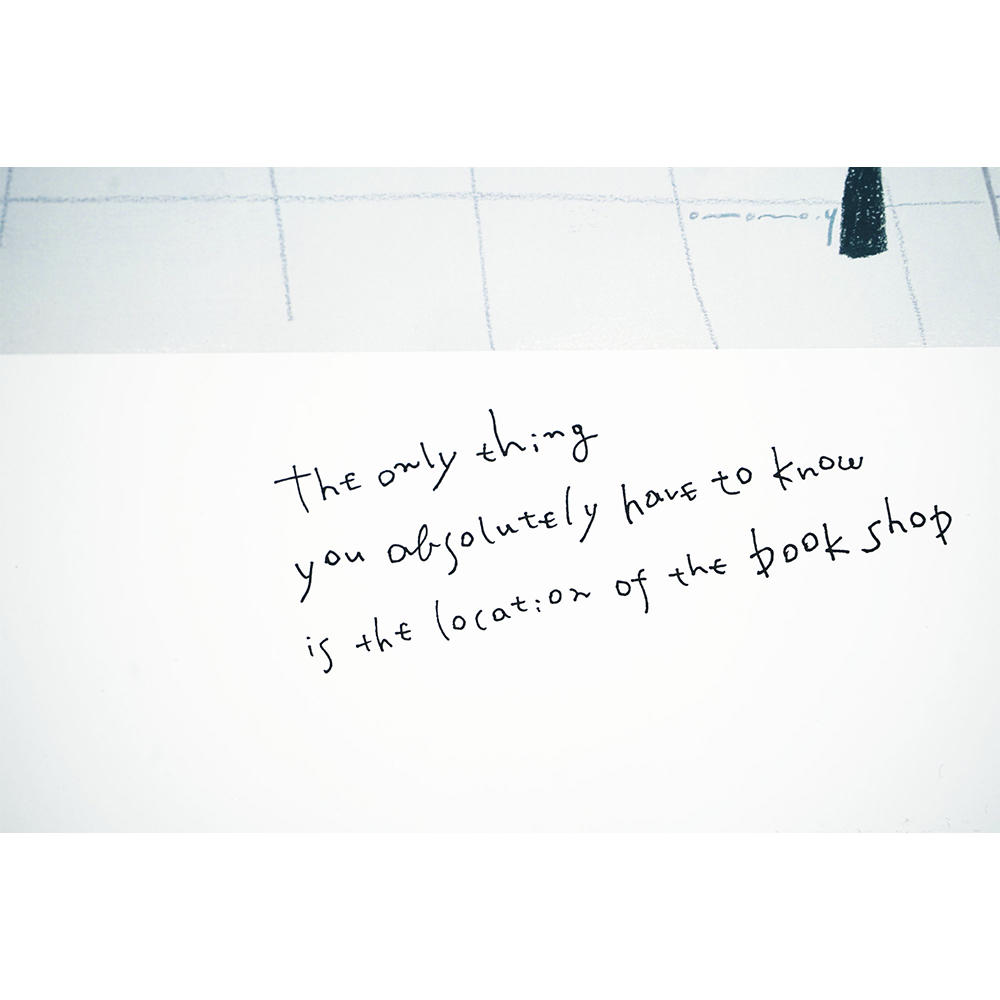 The only thing
you absolutely have to know
is the location of the book shop